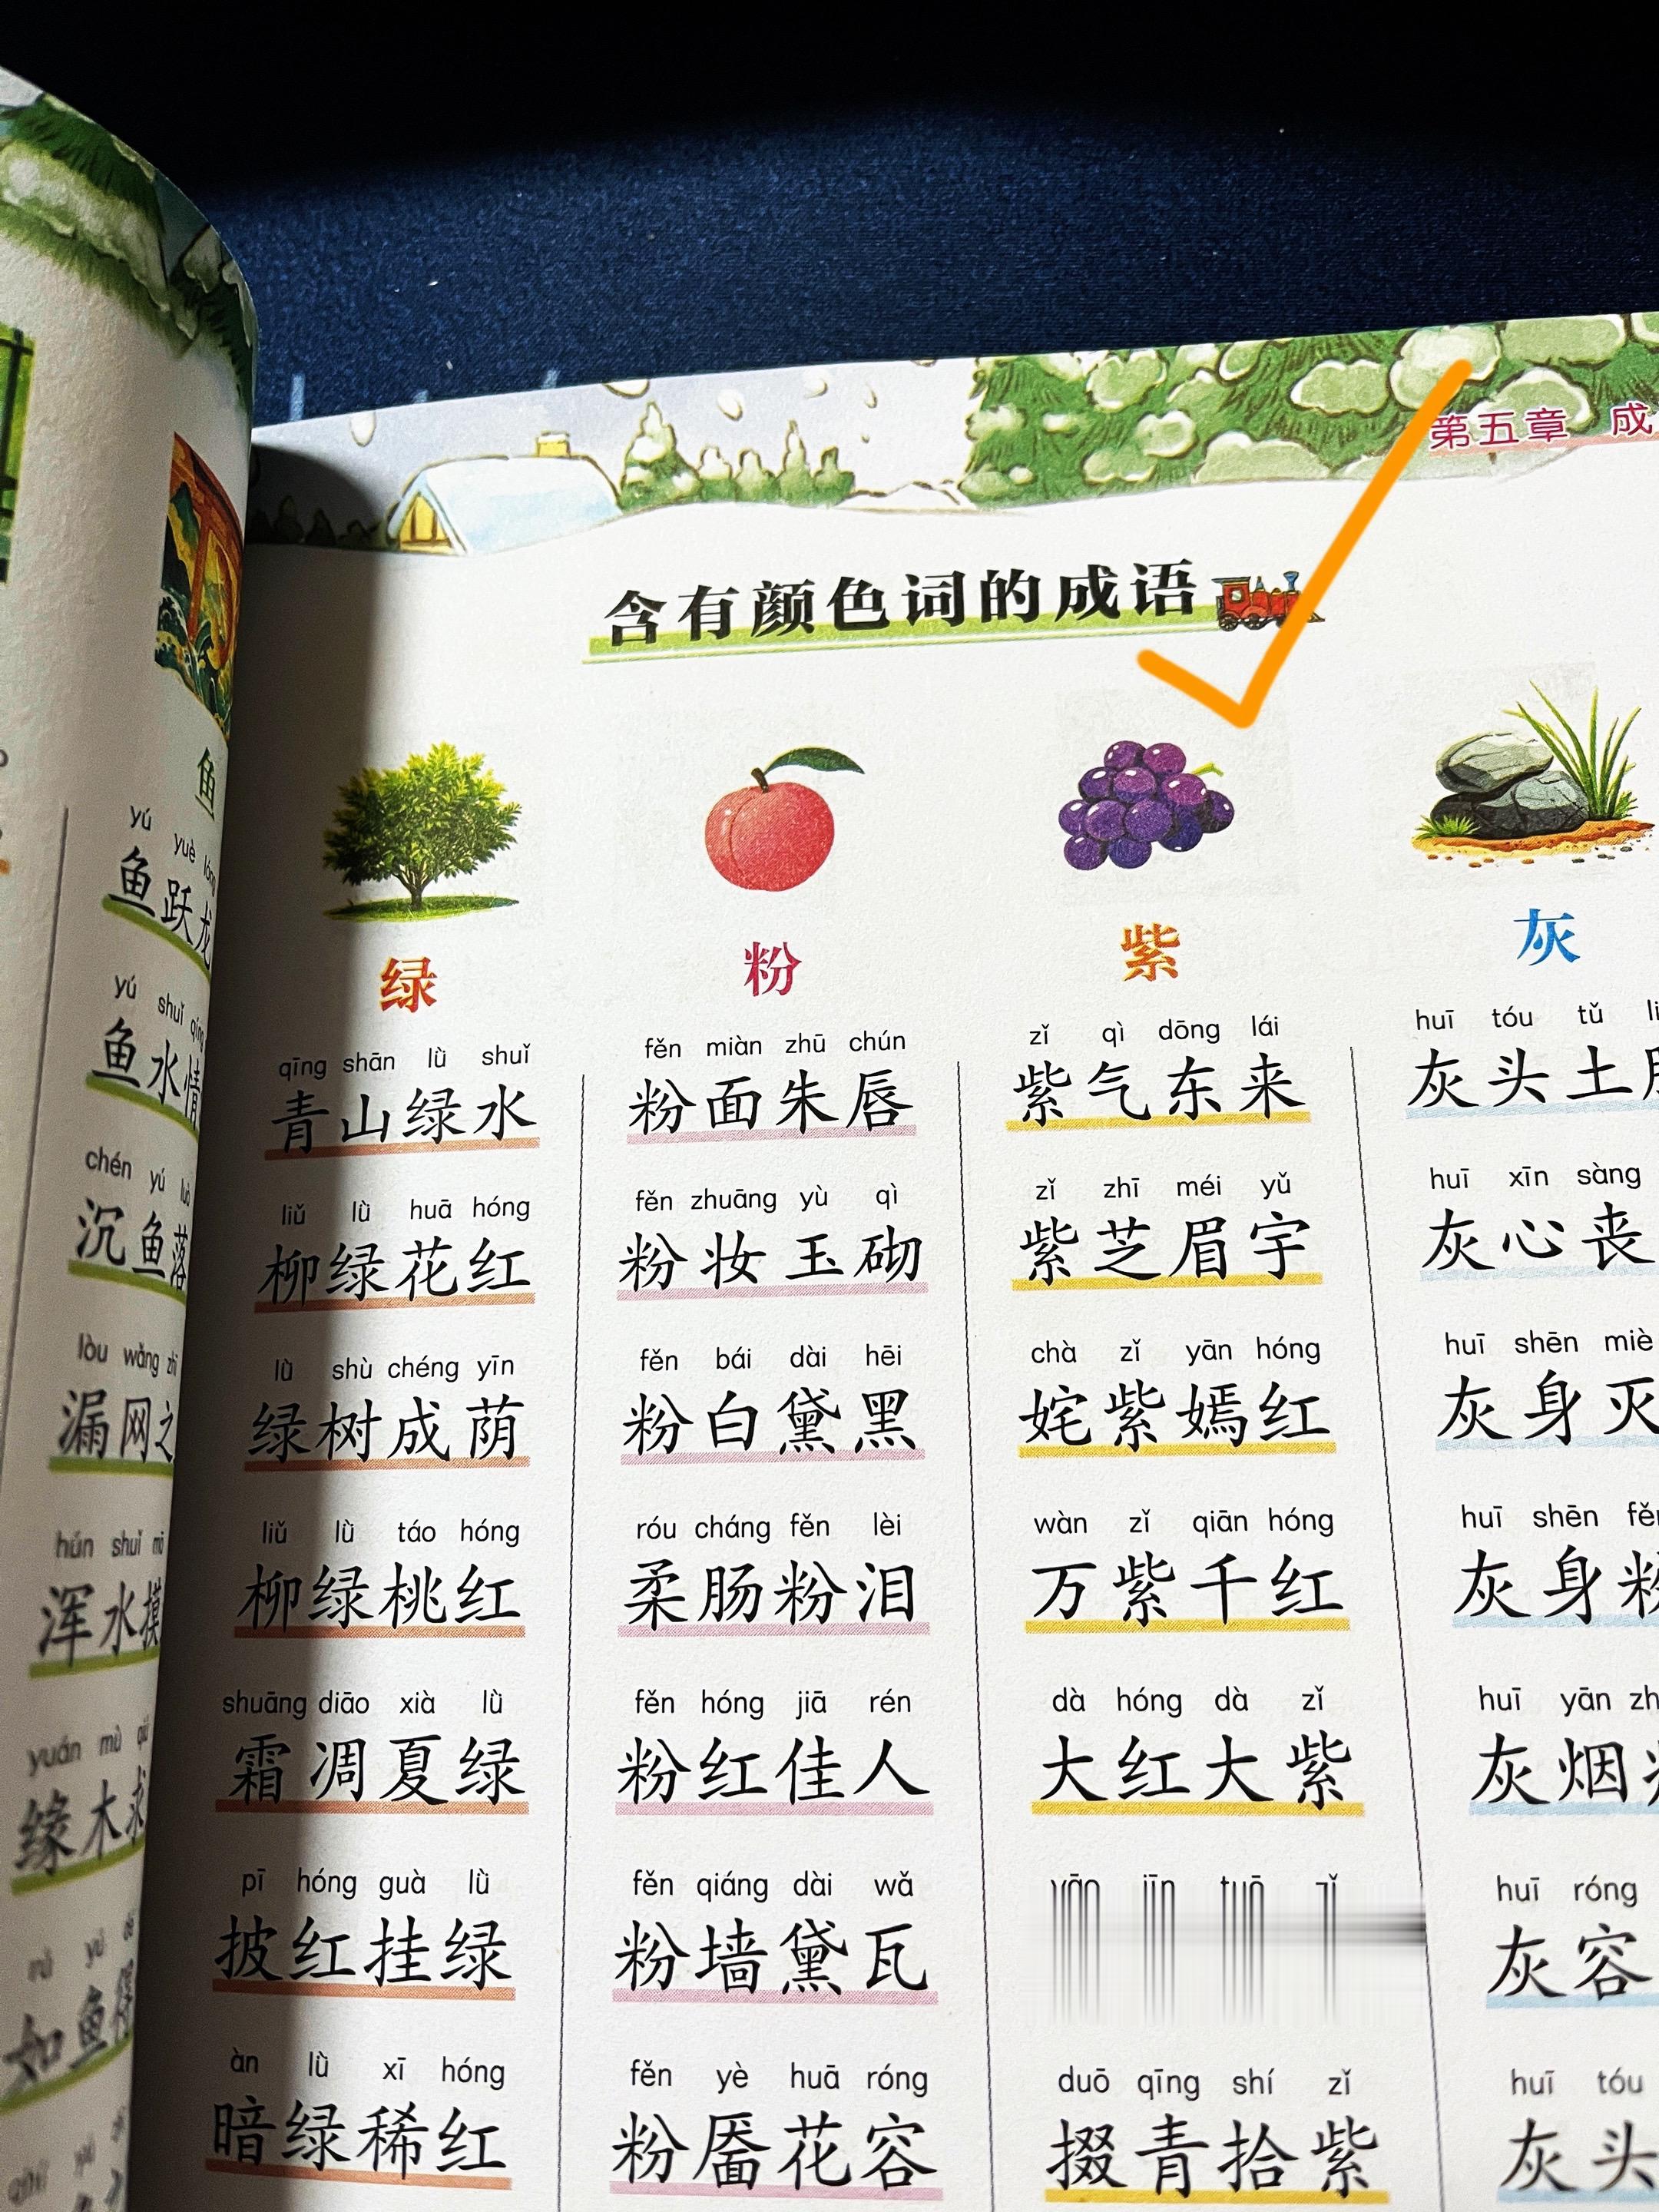 第五章 成
含有颜色词的成语
鱼
yú yuè
鱼跃龙
yú shuǐ qíng
鱼水情
chén yú luò
沉鱼落
lòu wǎng zhī
漏网之
hún shuǐ mō
浑水摸
yuán mù qiú
缘木求
如鱼得
绿
qīng shān lǜ shuǐ
青山绿水
liǔ lǜ huā hóng
柳绿花红
lǜ shù chéng yīn
绿树成荫
liǔ lǜ táo hóng
柳绿桃红
shuāng diāo xià lǜ
霜凋夏绿
pī hóng guà lǜ
披红挂绿
àn lǜ xī hóng
暗绿稀红
粉
fěn miàn zhū chún
粉面朱唇
fěn zhuāng yù qì
粉妆玉砌
fěn bái dài hēi
粉白黛黑
róu cháng fěn lèi
柔肠粉泪
fěn hóng jiā rén
粉红佳人
fěn qiáng dài wǎ
粉墙黛瓦
fěn yè huā róng
粉靥花容
紫
zǐ qì dōng lái
紫气东来
zǐ zhī méi yǔ
紫芝眉宇
chà zǐ yān hóng
姹紫嫣红
wàn zǐ qiān hóng
万紫千红
dà hóng dà zǐ
大红大紫
duō qīng shí zǐ
掇青拾紫
灰
huī tóu tǔ
灰头土
huī xīn sàng
灰心丧
huī shēn miè
灰身灭
huī shēn fěn
灰身粉
huī yān
灰烟
huī róng
灰容
huī tóu
灰头